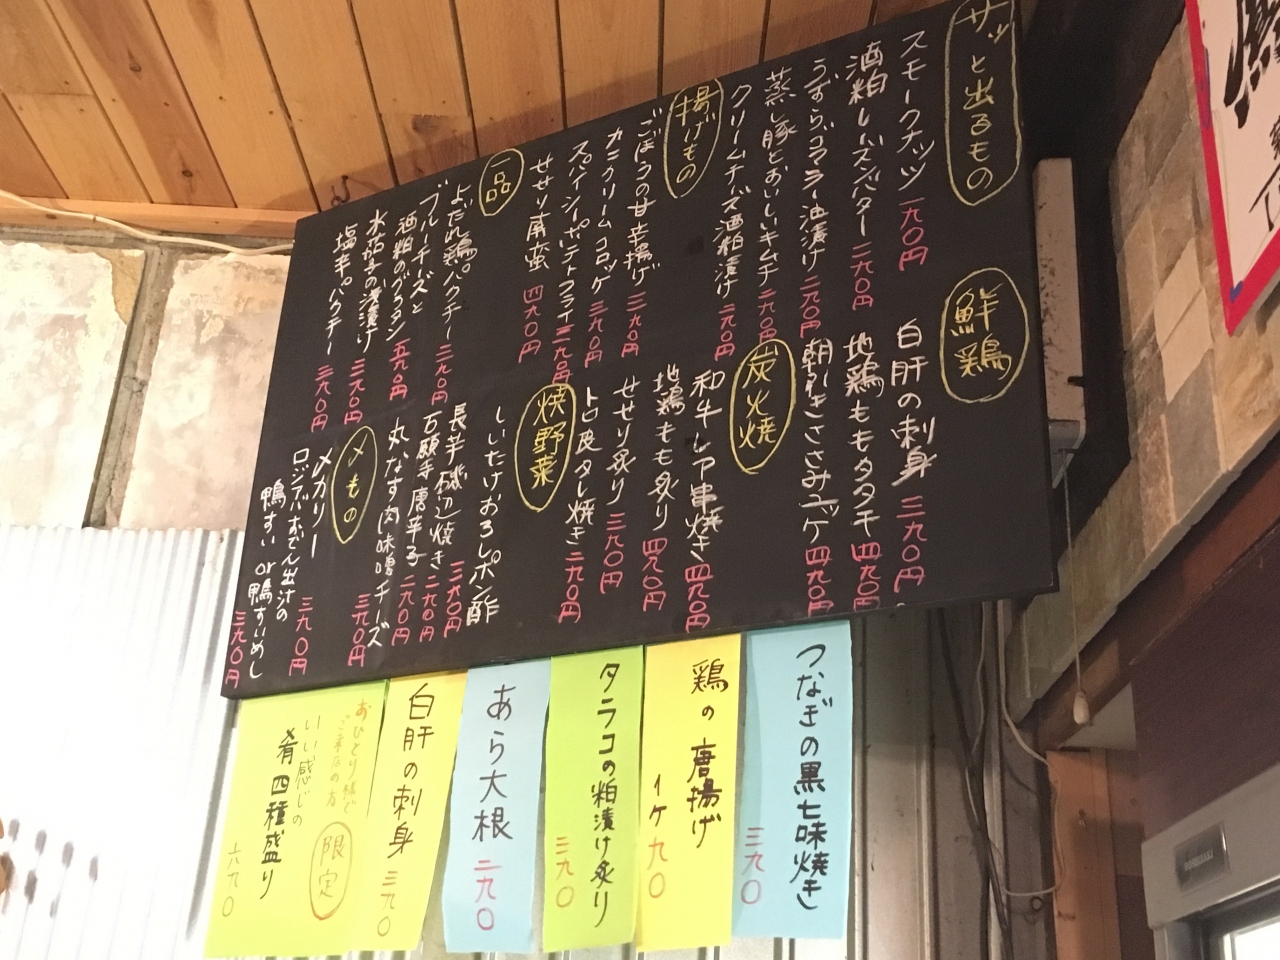 サッと出るもの
スモークナッツ 一九〇円
酒粕レーズンバター 二九〇円
うずらゴマラー油漬け 二九〇円
蒸し豚とおいしいキムチ 二九〇円
クリームチーズ酒粕漬け 二九〇円
揚げもの
ごぼうの甘辛揚げ 三九〇円
カニクリームコロッケ 三九〇円
スパイシーポテトフライ 三九〇円
せせり南蛮 四九〇円
一品
よだれ鶏パクチー 三九〇円
ブルーチーズと
酒粕のグラタン 五九〇円
水茄子の浅漬け 三九〇円
塩辛パクチー 三九〇円
鮮鶏
白肝の刺身 三九〇円
地鶏ももタタキ 四九〇円
朝引きささみユッケ 四九〇円
炭火焼
和牛レア串焼き 四九〇円
地鶏もも炙り 四九〇円
せせり炙り 三九〇円
トロ皮タレ焼き 二九〇円
焼野菜
しいたけおろしポン酢
長芋磯辺焼き 三九〇円
石願寺唐辛子 二九〇円
丸なす肉味噌チーズ
〆もの
〆カリー 三九〇円
ロジウラおでん出汁の
鴨すい or 鴨すいめし 三九〇円
つなぎの黒七味焼き 三九〇
鶏の唐揚げ 1ケ 九〇
タラコの粕漬け炙り 三九〇
あら大根 二九〇
白肝の刺身 三九〇
おひとり様で
ご来店の方 限定
いい感じの
肴四種盛り 六九〇